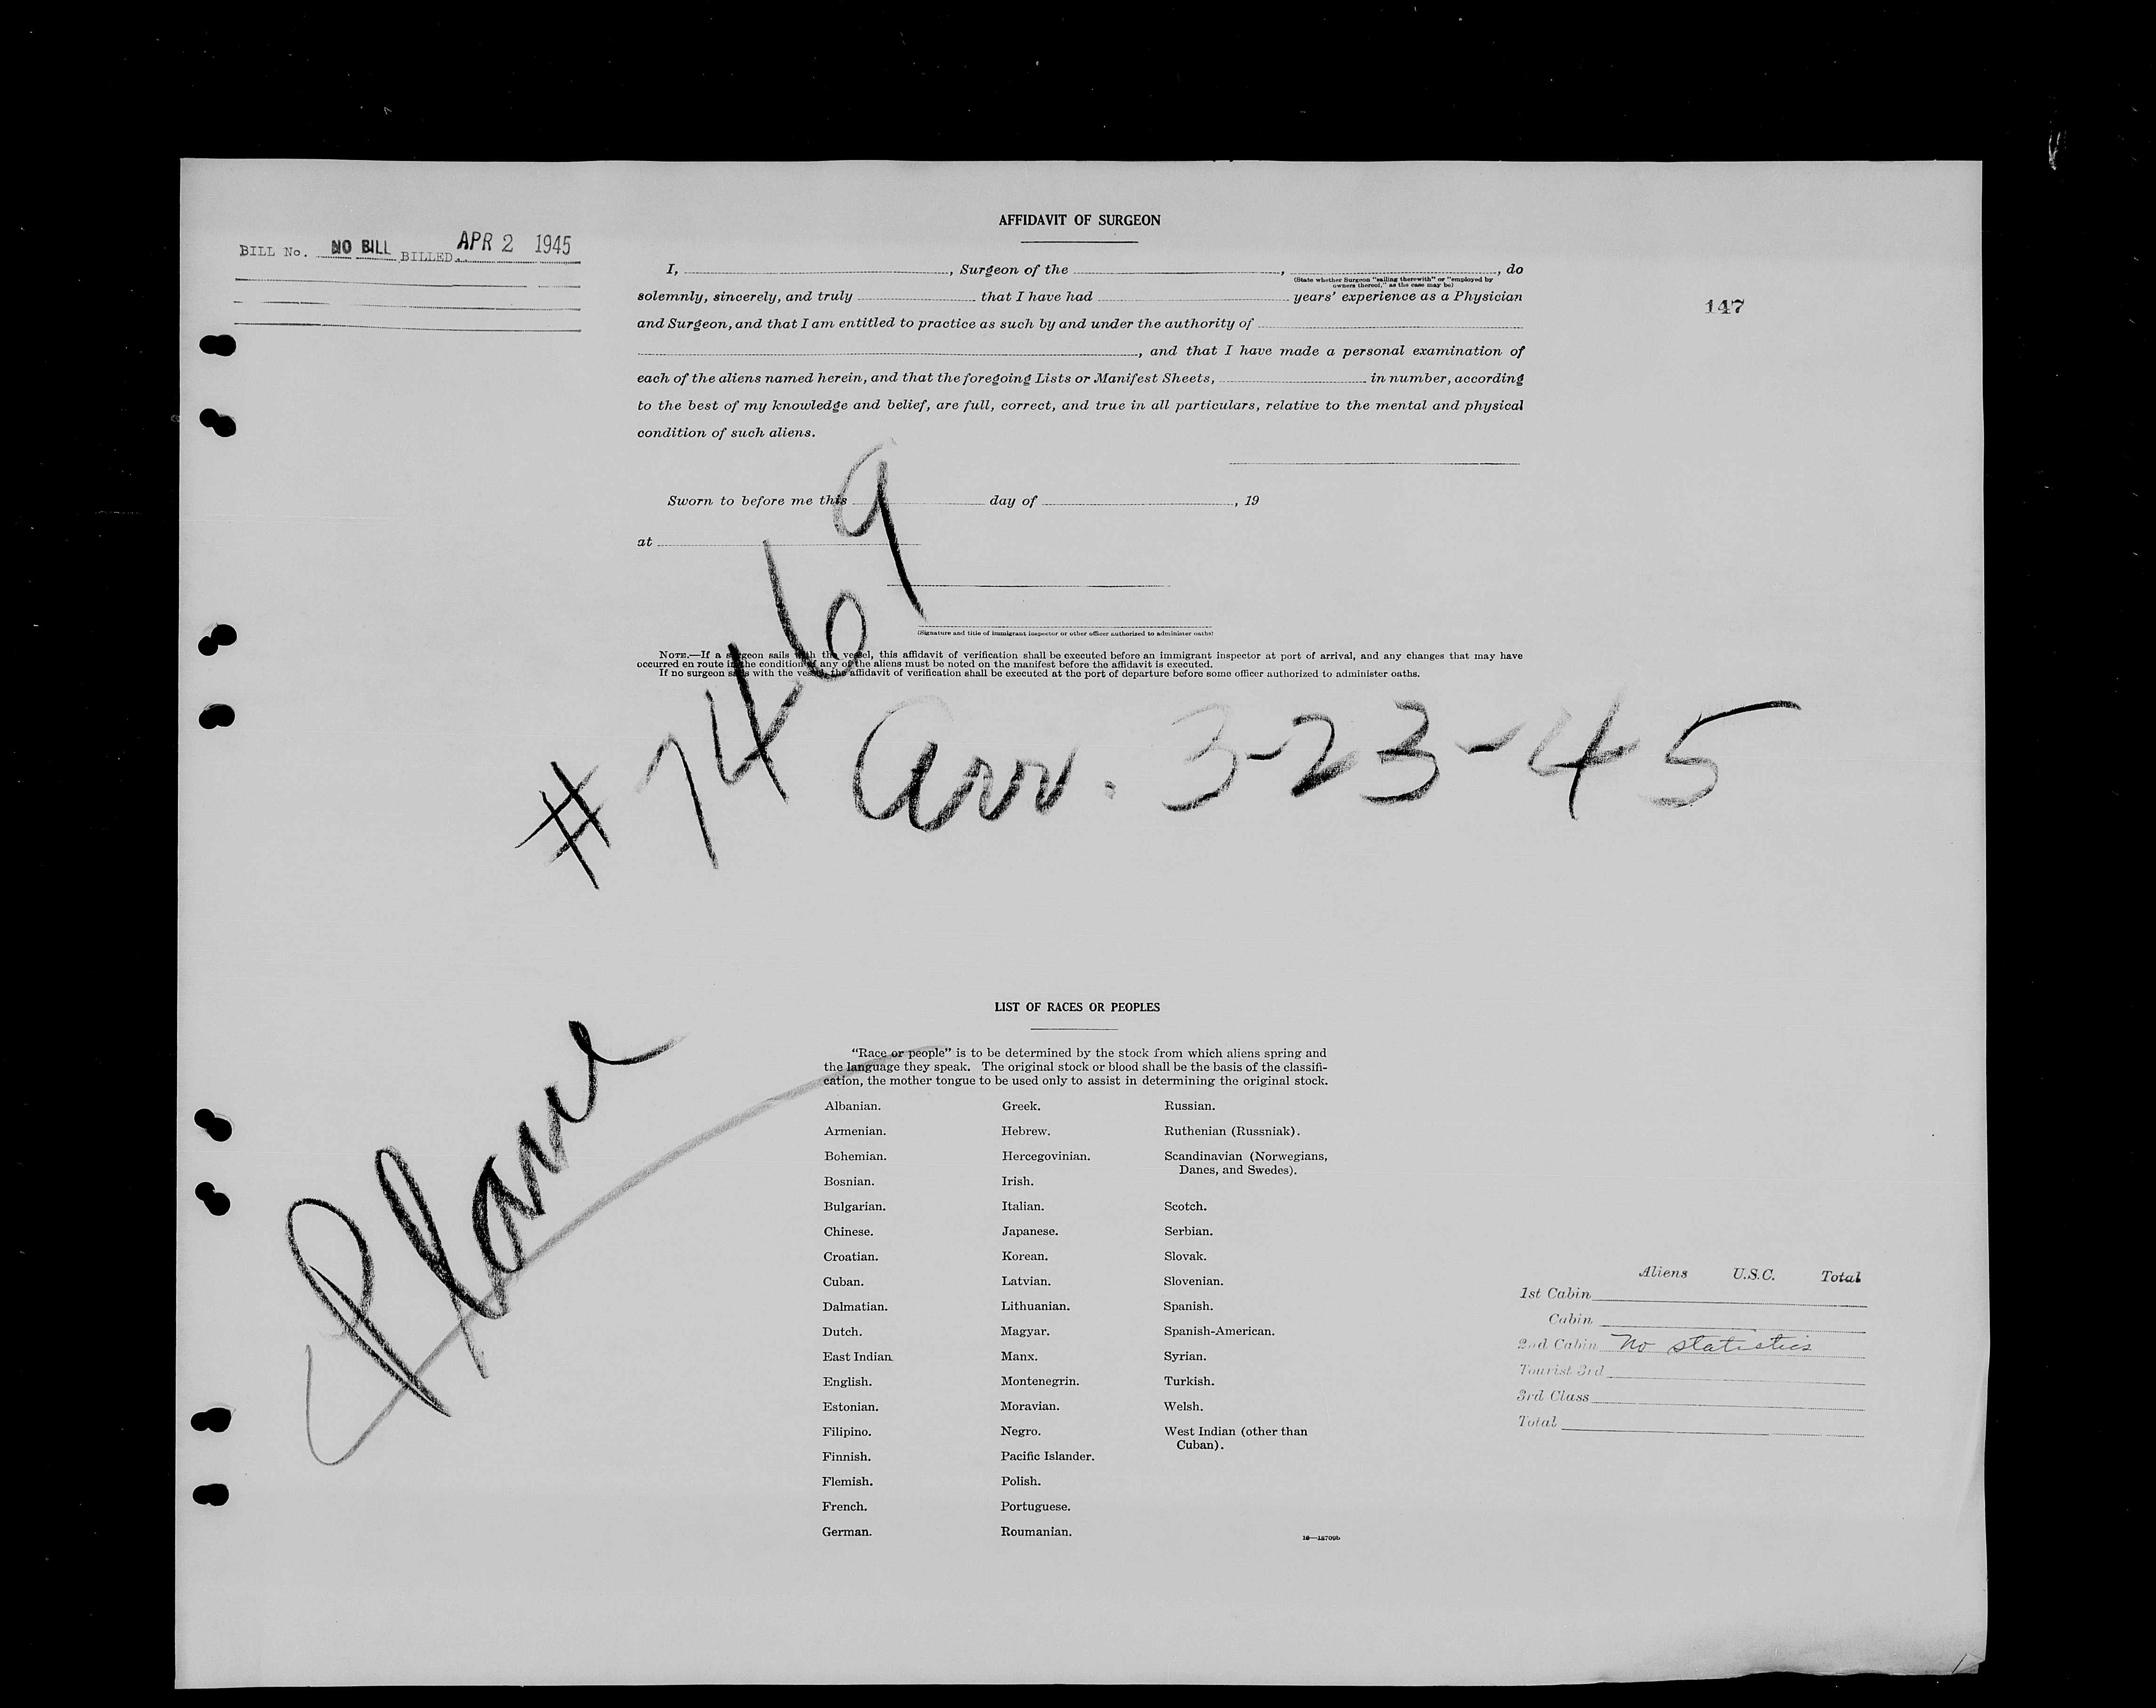 AFFIDAVIT OF SURGEON
BILL No. NO BILL BILLED APR 2 1945
I, , Surgeon of the , , do
(State whether Surgeon "sailing therewith" or "employed by
owners thereof," as the case may be)
solemnly, sincerely, and truly that I have had years' experience as a Physician
147
and Surgeon, and that I am entitled to practice as such by and under the authority of
, and that I have made a personal examination of
each of the aliens named herein, and that the foregoing Lists or Manifest Sheets, in number, according
to the best of my knowledge and belief, are full, correct, and true in all particulars, relative to the mental and physical
condition of such aliens.
Sworn to before me this day of , 19
at
(Signature and title of immigrant inspector or other officer authorized to administer oaths)
NOTE.—If a surgeon sails with the vessel, this affidavit of verification shall be executed before an immigrant inspector at port of arrival, and any changes that may have
occurred en route in the condition of any of the aliens must be noted on the manifest before the affidavit is executed.
If no surgeon sails with the vessel, the affidavit of verification shall be executed at the port of departure before some officer authorized to administer oaths.
#7469
Arr. 3-23-45
Plane
LIST OF RACES OR PEOPLES
"Race or people" is to be determined by the stock from which aliens spring and
the language they speak. The original stock or blood shall be the basis of the classifi-
cation, the mother tongue to be used only to assist in determining the original stock.
Albanian.
Armenian.
Bohemian.
Bosnian.
Bulgarian.
Chinese.
Croatian.
Cuban.
Dalmatian.
Dutch.
East Indian
English.
Estonian.
Filipino.
Finnish.
Flemish.
French.
German.
Greek.
Hebrew.
Hercegovinian.
Irish.
Italian.
Japanese.
Korean.
Latvian.
Lithuanian.
Magyar.
Manx.
Montenegrin.
Moravian.
Negro.
Pacific Islander.
Polish.
Portuguese.
Roumanian.
Russian.
Ruthenian (Russniak).
Scandinavian (Norwegians,
Danes, and Swedes).
Scotch.
Serbian.
Slovak.
Slovenian.
Spanish.
Spanish-American.
Syrian.
Turkish.
Welsh.
West Indian (other than
Cuban).
Aliens U.S.C. Total
1st Cabin
Cabin
2nd Cabin No statistics
Tourist 3rd
3rd Class
Total